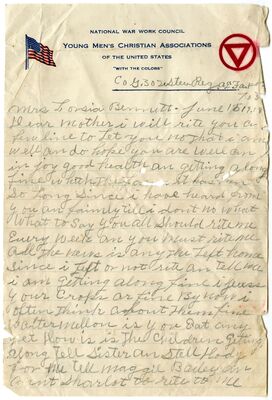 NATIONAL WAR WORK COUNCIL
YOUNG MEN'S CHRISTIAN ASSOCIATIONS
OF THE UNITED STATES
"WITH THE COLORS"
Co G.
Mrs Lousia Bennett June 15 1918
Dear Mother i will rite you a
few line to let you no that i am
well and do hope you are well an
in joy good health an getting along
fine
So long Since i have heard from
you an family till i dont no what
What to Say you all Should rite me
Every Week an you Must rite me
all the news is any the left home
Since i left or not rite an tell me
i am getting along fine i guess
your Crops ar fine By now i
often think about them fine
Watter mellon is you Eat any
yet How is The Children getting
along tell Sister an Stell Hody
for me tell maggie Bailey an
aunt Sharlot to rite to me